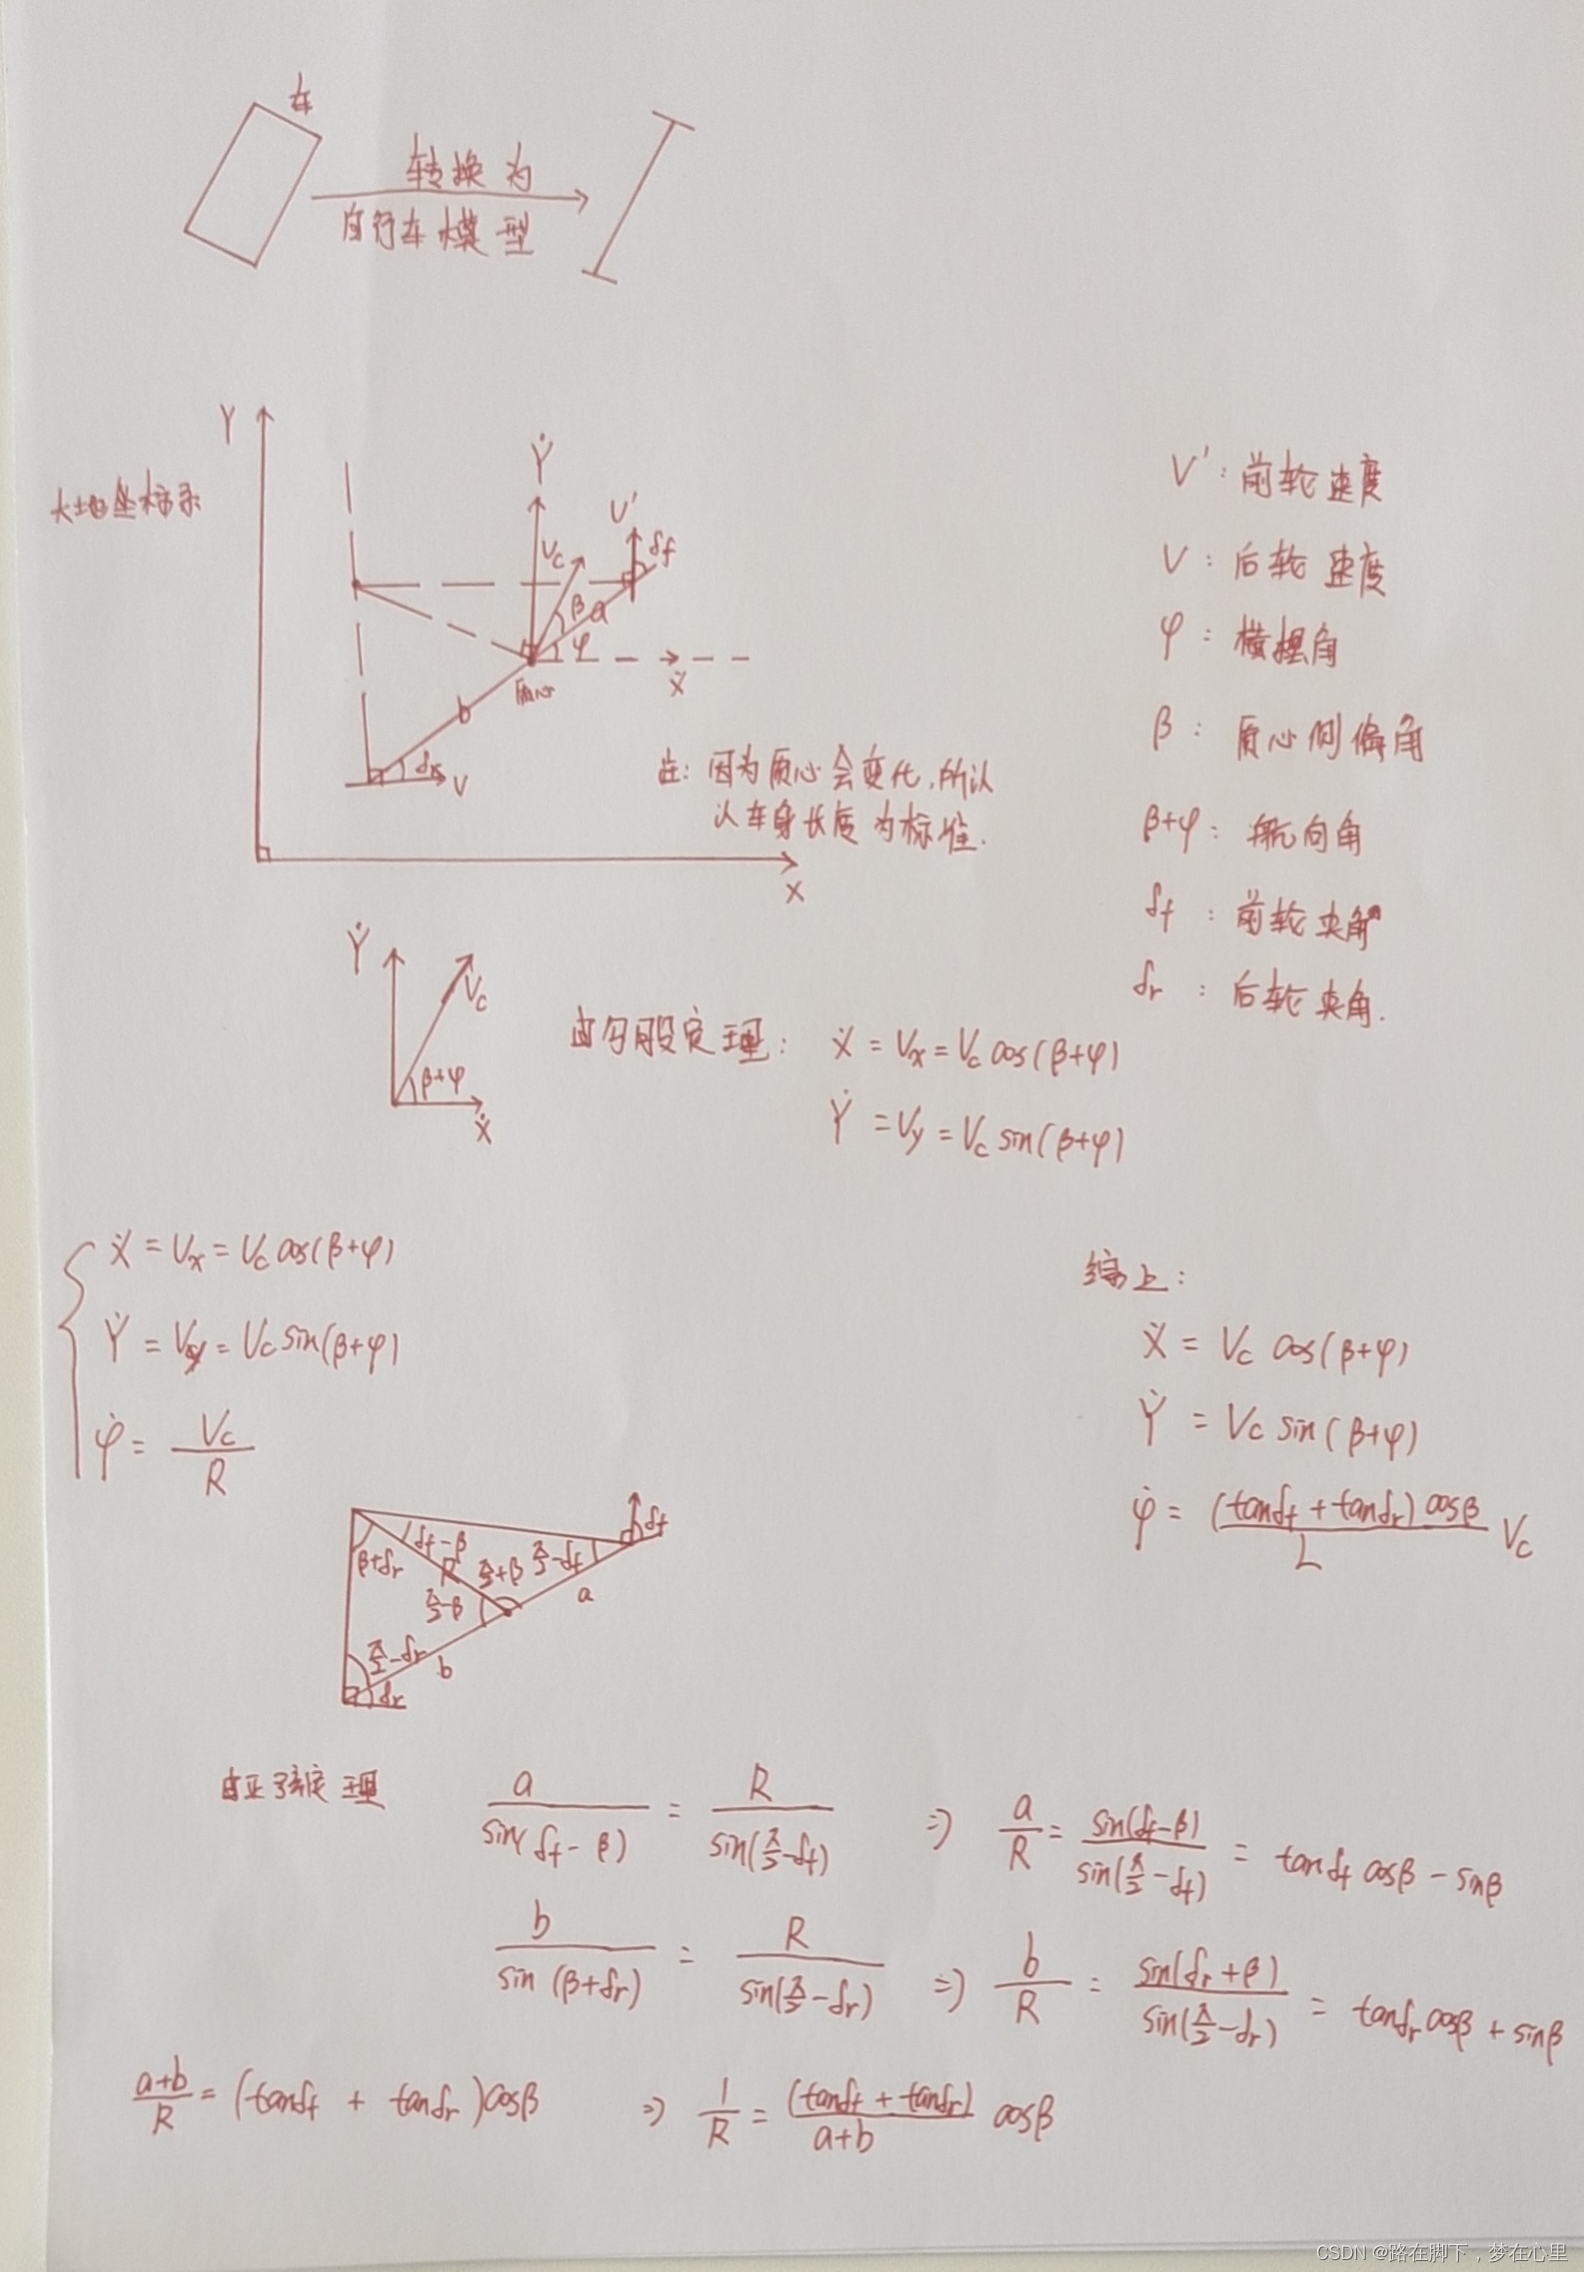 车
转换为
自行车模型
Y
大地坐标系
Ẏ
V'
δf
Vc
β
a
φ
Ẋ
质心
b
δr
V
X
注: 因为质心会变化,所以
以车身长度为标准.
V': 前轮速度
V: 后轮速度
φ: 横摆角
β: 质心侧偏角
β+φ: 航向角
δf: 前轮夹角
δr: 后轮夹角.
Ẏ
Vc
β+φ
Ẋ
由勾股定理: Ẋ = Vx = Vc cos(β+φ)
Ẏ = Vy = Vc sin(β+φ)
Ẋ = Vx = Vc cos(β+φ)
Ẏ = Vy = Vc sin(β+φ)
φ̇ = Vc/R
综上:
Ẋ = Vc cos(β+φ)
Ẏ = Vc sin(β+φ)
φ̇ = (tanδf + tanδr) cosβ / L Vc
δf
δf-β
β+δr
R
π/2+β
π/2-δf
π/2-β
a
π/2-δr
b
δr
由正弦定理 a/sin(δf-β) = R/sin(π/2-δf) ⇒ a/R = sin(δf-β)/sin(π/2-δf) = tanδf cosβ - sinβ
b/sin(β+δr) = R/sin(π/2-δr) ⇒ b/R = sin(δr+β)/sin(π/2-δr) = tanδr cosβ + sinβ
a+b/R = (tanδf + tanδr)cosβ ⇒ 1/R = (tanδf + tanδr)/a+b cosβ
CSDN @路在脚下，梦在心里